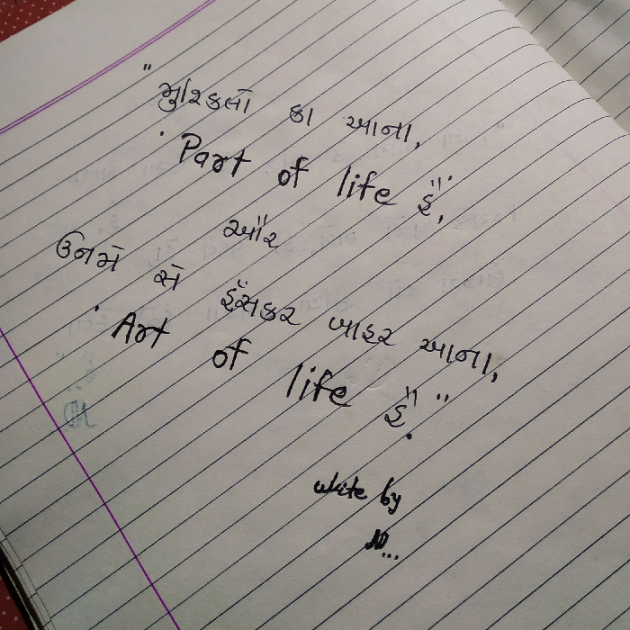 "મુશ્કિલોં કા આના,
'Part of life' હૈ,
ઔર
ઉનમેં સે હઁસકર બાહર આના,
'Art of life' હૈ."
write by